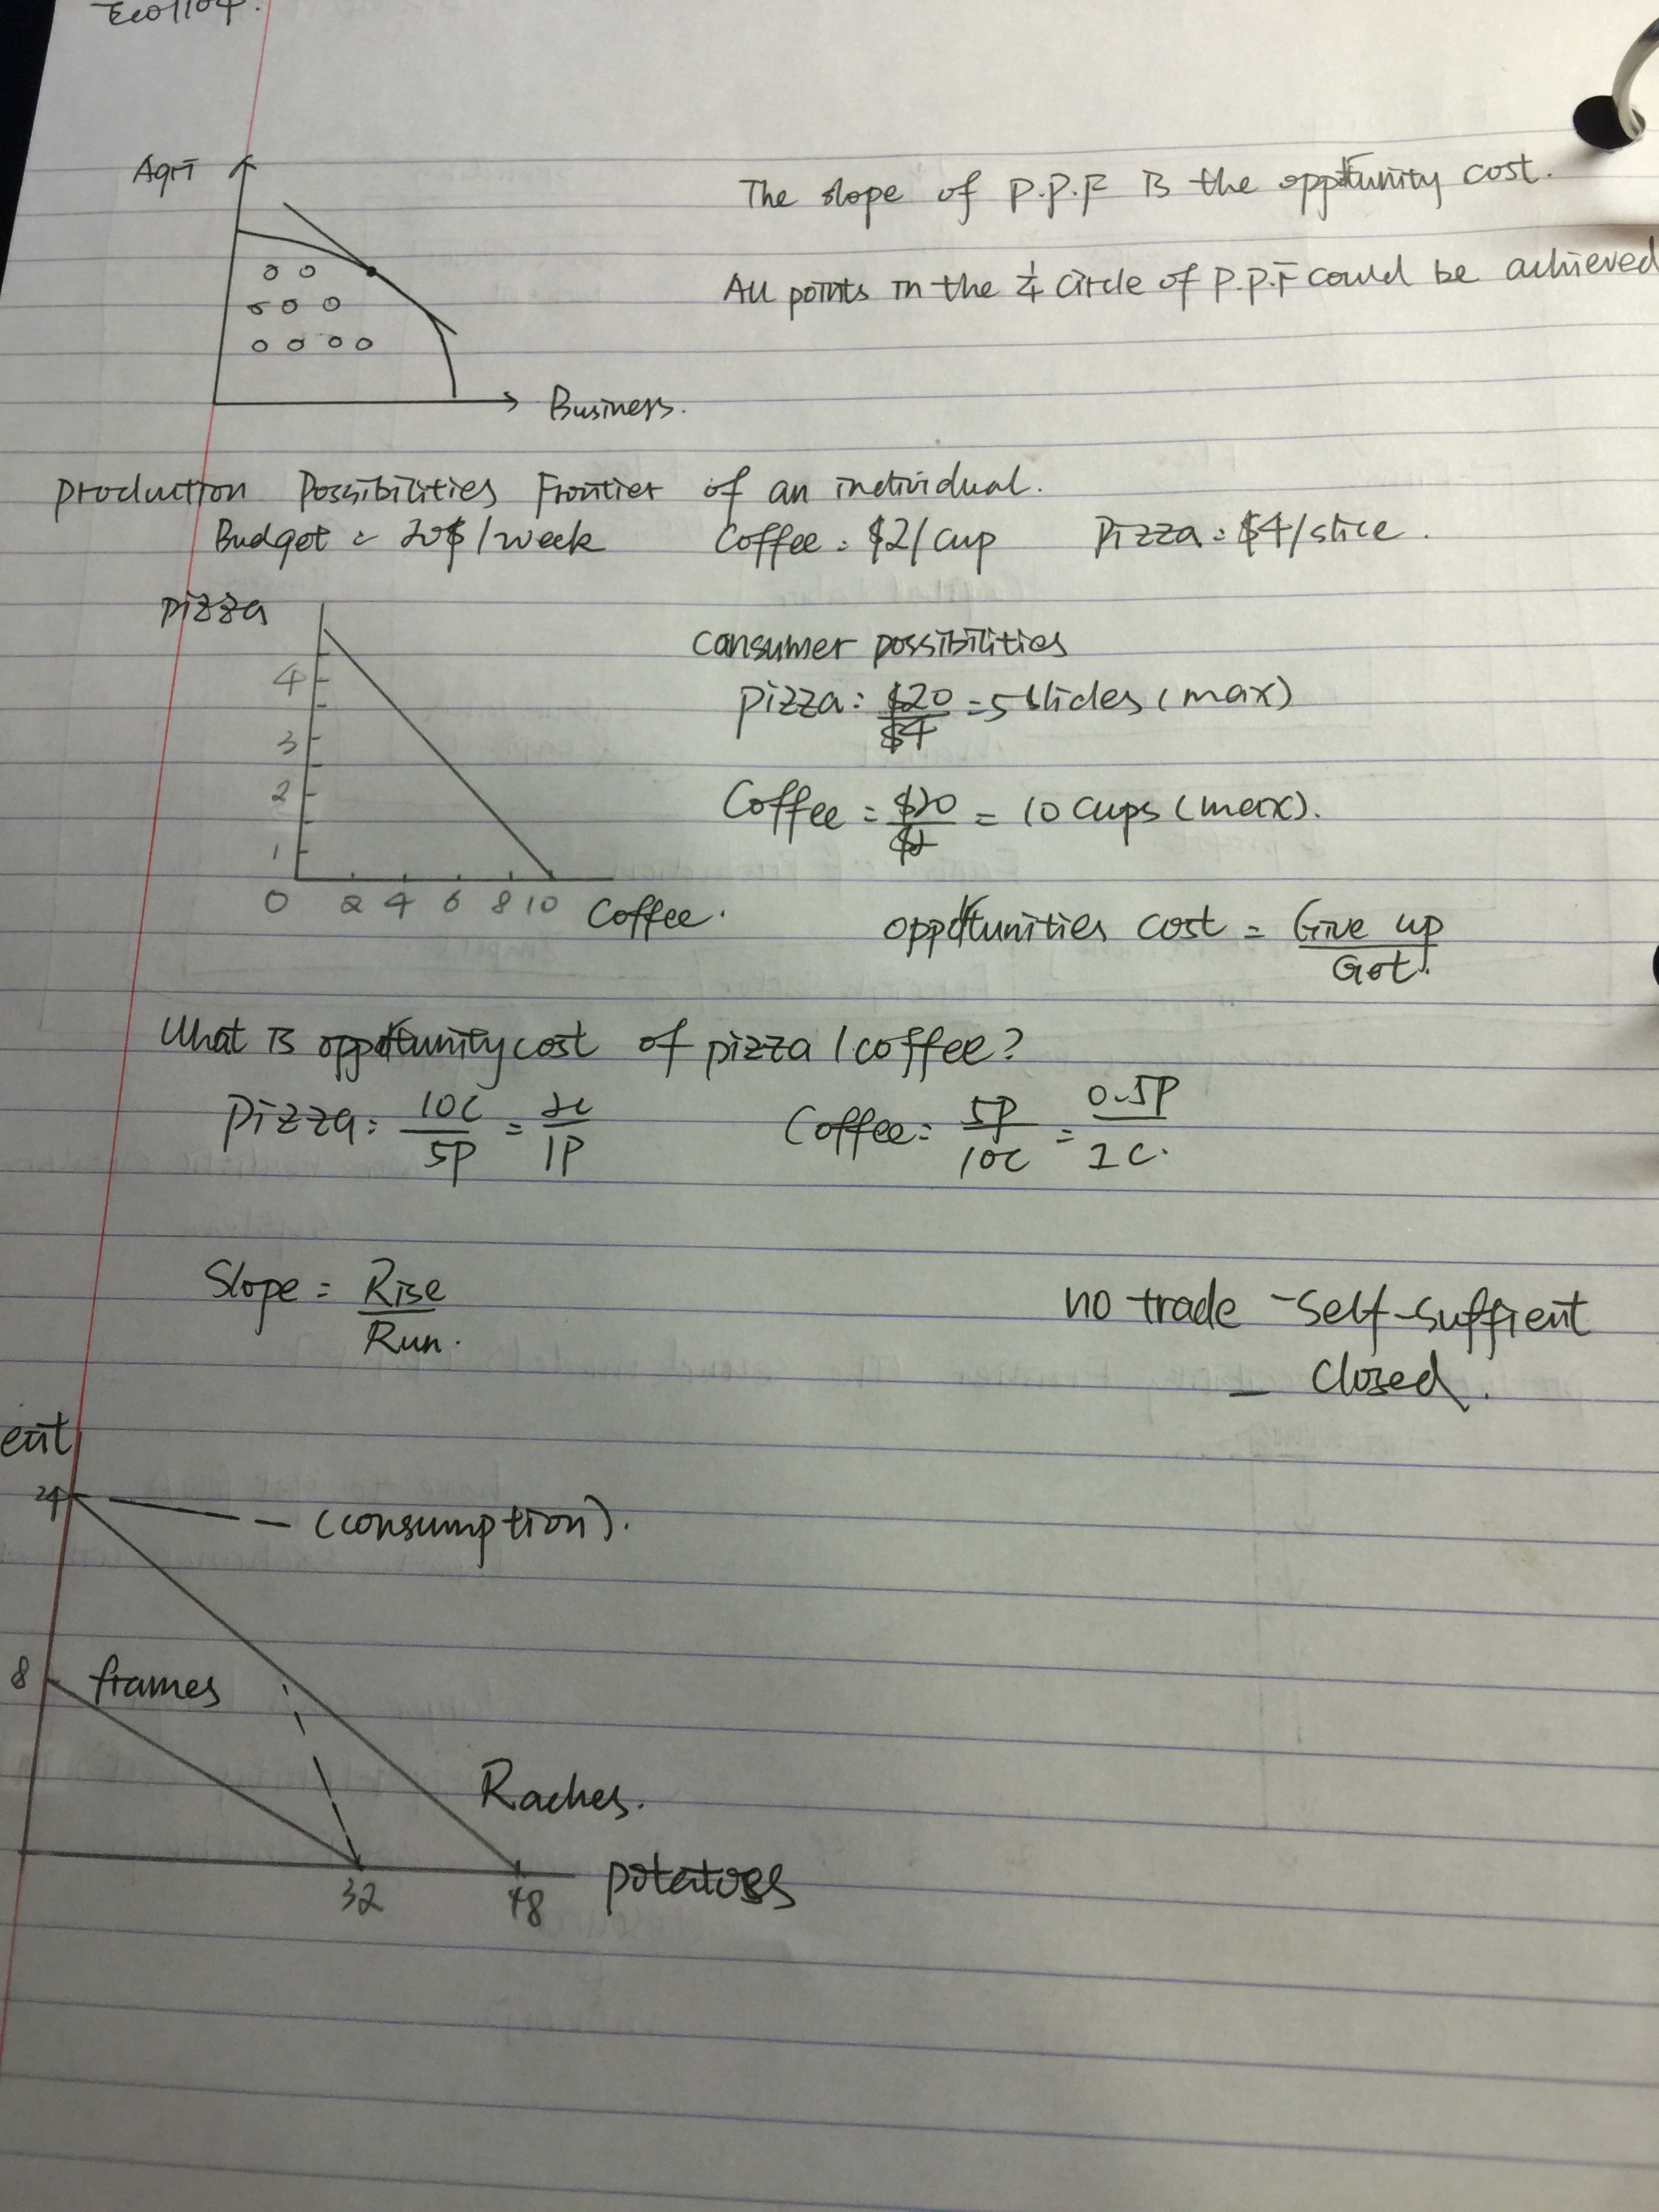 Eco1104.
Agri
The slope of P.P.F is the opportunity cost.
All points in the 1/4 circle of P.P.F could be achieved
Business.
production Possibilities Frontier of an individual.
Budget = 20$/week Coffee = $2/cup Pizza = $4/slice.
pizza
consumer possibilities
4
pizza: $20/$4 = 5 slides (max)
3
2
Coffee = $20/$2 = 10 cups (max).
1
0 2 4 6 8 10 Coffee.
opportunities cost = Give up/Got.
What is opportunity cost of pizza / coffee?
Pizza: 10C/5P = 2C/1P Coffee: 5P/10C = 0.5P/1C.
Slope = Rise/Run.
no trade - self-suffient
- closed.
24
(consumption).
8 frames
Raches.
32 48 potatoes